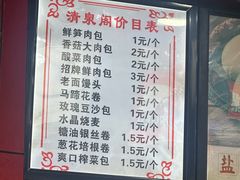 清泉阁价目表
鲜笋肉包 1元/个
香菇大肉包 2元/个
酸菜肉包 2元/个
招牌鲜肉包 3元/个
老面馒头 1元/个
马蹄花卷 1元/个
玫瑰豆沙包 1元/个
水晶烧麦 1元/个
糖油银丝卷 1.5元/个
葱花培根卷 1.5元/个
爽口榨菜包 1.5元/个
盐